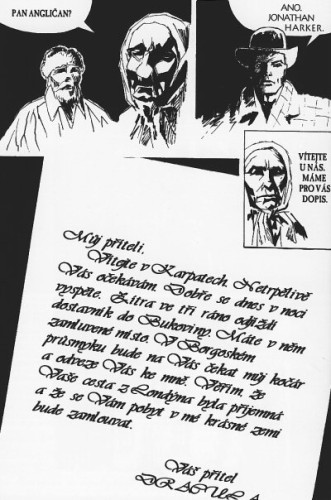 PAN ANGLIČAN?
ANO.
JONATHAN
HARKER.
VÍTEJTE
U NÁS.
MÁME
PRO VÁS
DOPIS.
Můj příteli.
Vítejte v Karpatech. Netrpělivě
Vás očekávám. Dobře se dnes v noci
vyspěte. Zítra ve tři ráno odjíždí
dostavník do Bukoviny. Máte v něm
zamluvené místo. V Borgoském
průsmyku bude na Vás čekat můj kočár
a odveze Vás ke mně. Věřím, že
Vaše cesta z Londýna byla příjemná
a že se Vám pobyt v mé krásné zemi
bude zamlouvat.
Váš přítel
DRACULA